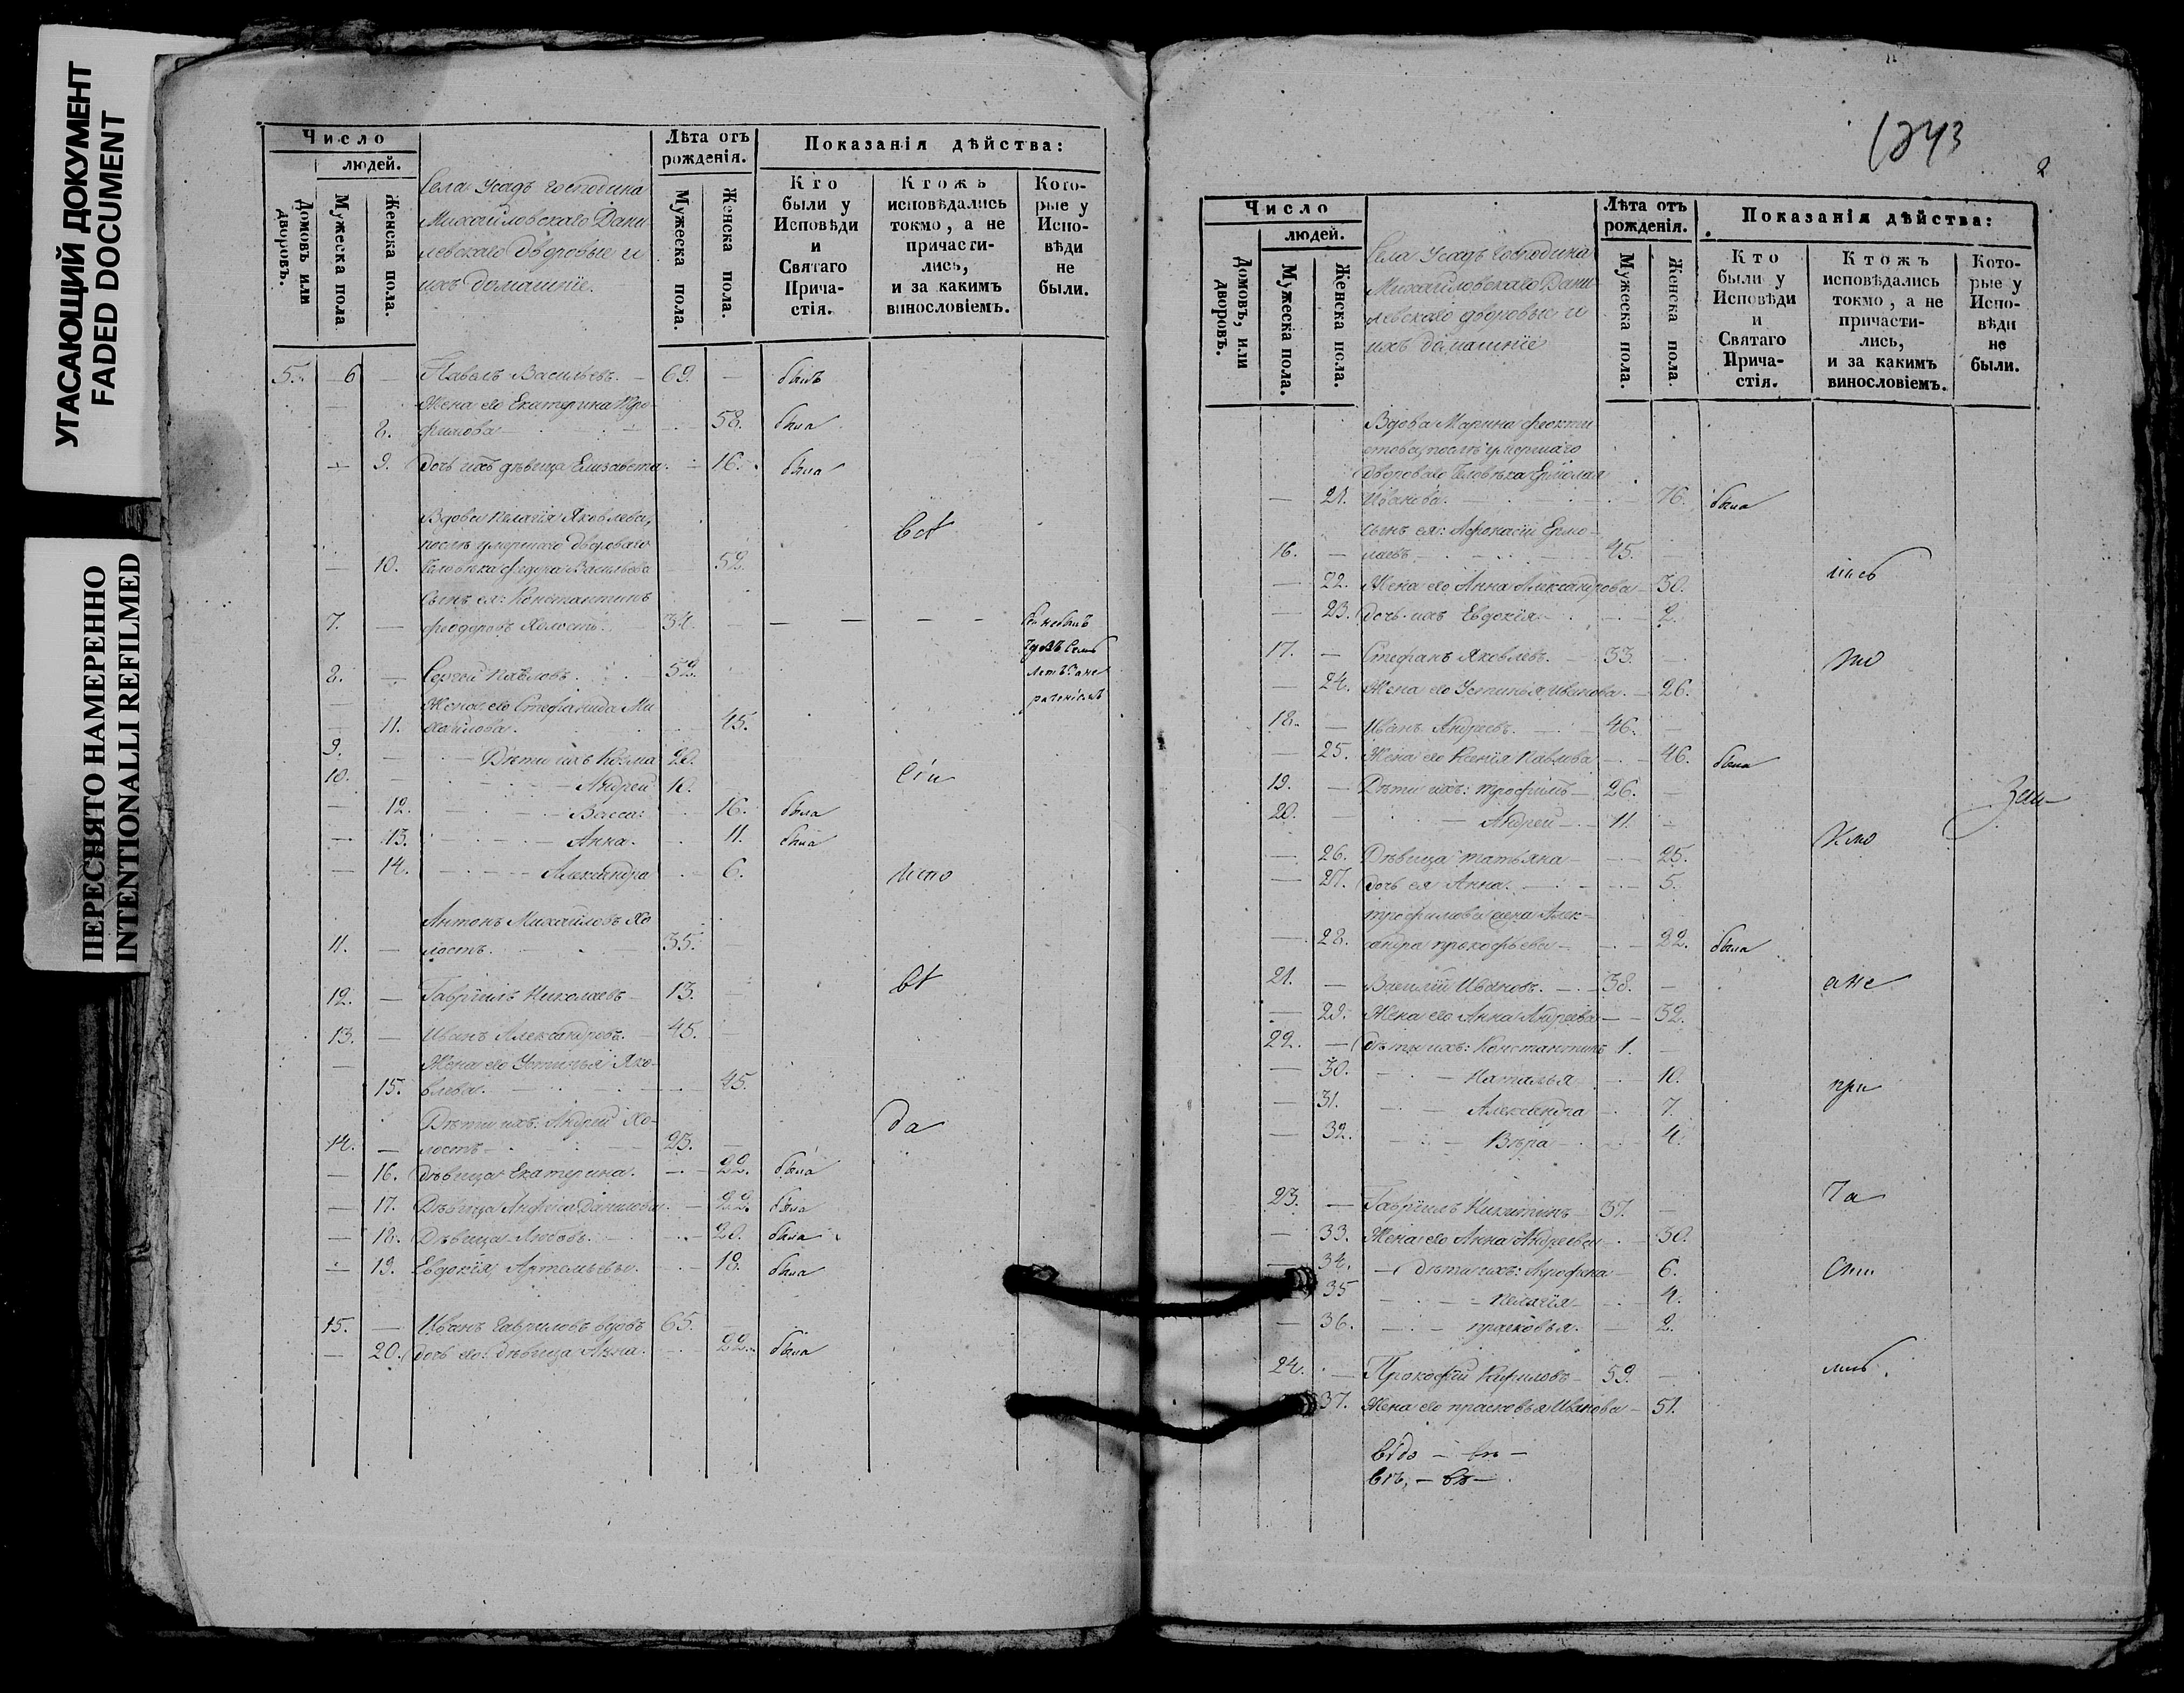 УГАСАЮЩИЙ ДОКУМЕНТ
FADED DOCUMENT
ПЕРЕСНЯТО НАМЕРЕННО
INTENTIONALLI REFILMED
Число
людей.
Домовъ или дворовъ.
Мужеска пола
Женска пола.
Села Усадъ господина
Михайловскаго Дани
левскаго дворовые и
ихъ домашніе.
Лѣта отъ рожденія.
Мужеска пола.
Женска пола.
Показанія дѣйства:
Кто были у Исповѣди и Святаго Прича-стія.
Ктожъ исповѣдались токмо, а не причасти-лись, и за какимъ винословіемъ.
Кото-рые у Испо-вѣди не были.
5. 6 — Павелъ Васильевъ. — 69. — былъ
Жена его Екатерина Тро-
8. фимова — 58. была
— 9. Дочь ихъ дѣвица Елизавета. — 16. была
Вдова Пелагія Яковлева,
послѣ умершаго двороваго
— 10. человѣка Федора Васильева 52.
Сынъ ея: Константинъ
7. — Феодоровъ холостъ. 34. —
8. — Сергей Павловъ. 52.
Жена его Стефанида Ми
— 11. хайлова. 45.
9. — Дѣти ихъ Козма 20.
10. — Андрей 10. сіи
— 12. — Васса: 16. была
— 13. — Анна. 11. была
— 14. — Александра 6. испо
Антонъ Михайловъ хо
11. — лостъ. 35. —
12. — Гавріилъ Николаевъ 13. —
13. — Иванъ Александровъ. — 45. —
Жена его Устинья Яко-
15. влева. — 45.
Дѣти ихъ: Андрей хо- да
14. — лостъ — 23. —
— 16. Дѣвица Екатерина. — 22. была
— 17. Дѣвица Анфиса Данилова. — 22. была
— 18. Дѣвица Любовь. — 20. была
— 19. Евдокія Артемьева. — 18. была
15. — Иванъ Гавриловъ вдовъ 65. —
— 20. Дочь его: дѣвица Анна. 22. была
1243
2
Число
людей.
Домовъ, или дворовъ.
Мужеска пола.
Женска пола.
Села Усадъ господина
Михайловскаго Дани
левскаго дворовые и
ихъ домашніе
Лѣта отъ рожденія.
Мужеска пола.
Женска пола.
Показанія дѣйства:
Кто были у Исповѣди и Святаго Прича-стія.
Ктожъ исповѣдались токмо, а не причасти-лись, и за какимъ винословіемъ.
Кото-рые у Испо-вѣди не были.
Вдова Марина Феокти
стова, послѣ умершаго
двороваго человѣка Ермолая
— 21. Иванова. — 76. была
Сынъ ея: Афонасій Ермо-
16. — лаевъ — 45. —
— 22. Жена его Анна Александрова — 30.
— 23. Дочь ихъ Евдокія — 2.
17. — Стефанъ Яковлевъ. — 33. —
— 24. Жена его Устинья Иванова. — 26.
18. — Иванъ Андреевъ. — 46. —
— 25. Жена его Ксенія Павлова — 46. была
19. — Дѣти ихъ: Трофимъ — 26. —
20. — Андрей — 11. —
— 26. Дѣвица Татьяна — 25.
— 27. Дочь ея Анна. — 5.
Трофимова жена Алек-
— 28. сандра Прокофьева — 22. была
21. — Василій Ивановъ. — 38. — ане
— 29. Жена его Анна Андреева — 32.
22. — Дѣти ихъ: Константинъ 1. —
— 30. — Наталья — 10. при
— 31. — Александра — 7.
— 32. — Вѣра — 4.
23. — Гавріилъ Никитинъ — 37. — ча
— 33. Жена его Анна Андреева — 30.
34. — Дѣти ихъ: Агрофена — 6. сти
35 — Пелагія — 4.
— 36. — Прасковья. — 2.
24. — Прокофій Кириловъ — 59. — лись
37. Жена его Прасковья Иванова — 51.